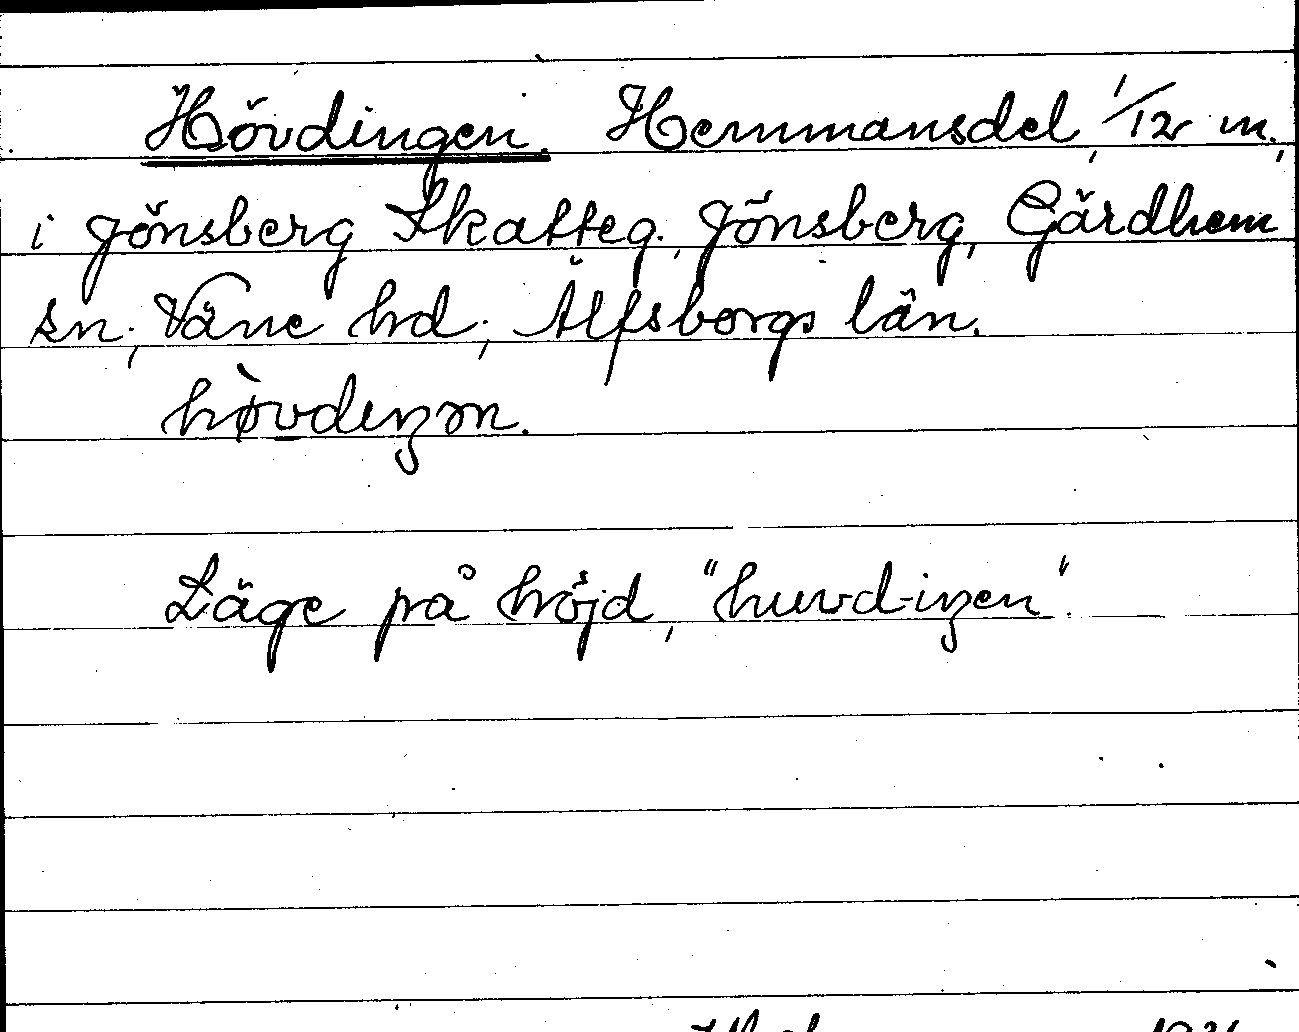 Hövdingen. Hemmansdel, 1/12 m.,
i Jönsberg Skatteg., Jönsberg, Gärdhem
sn; Väne hd; Älfsborgs län.
hø̀vdeŋən.
Läge på höjd, "huvd-iŋen".